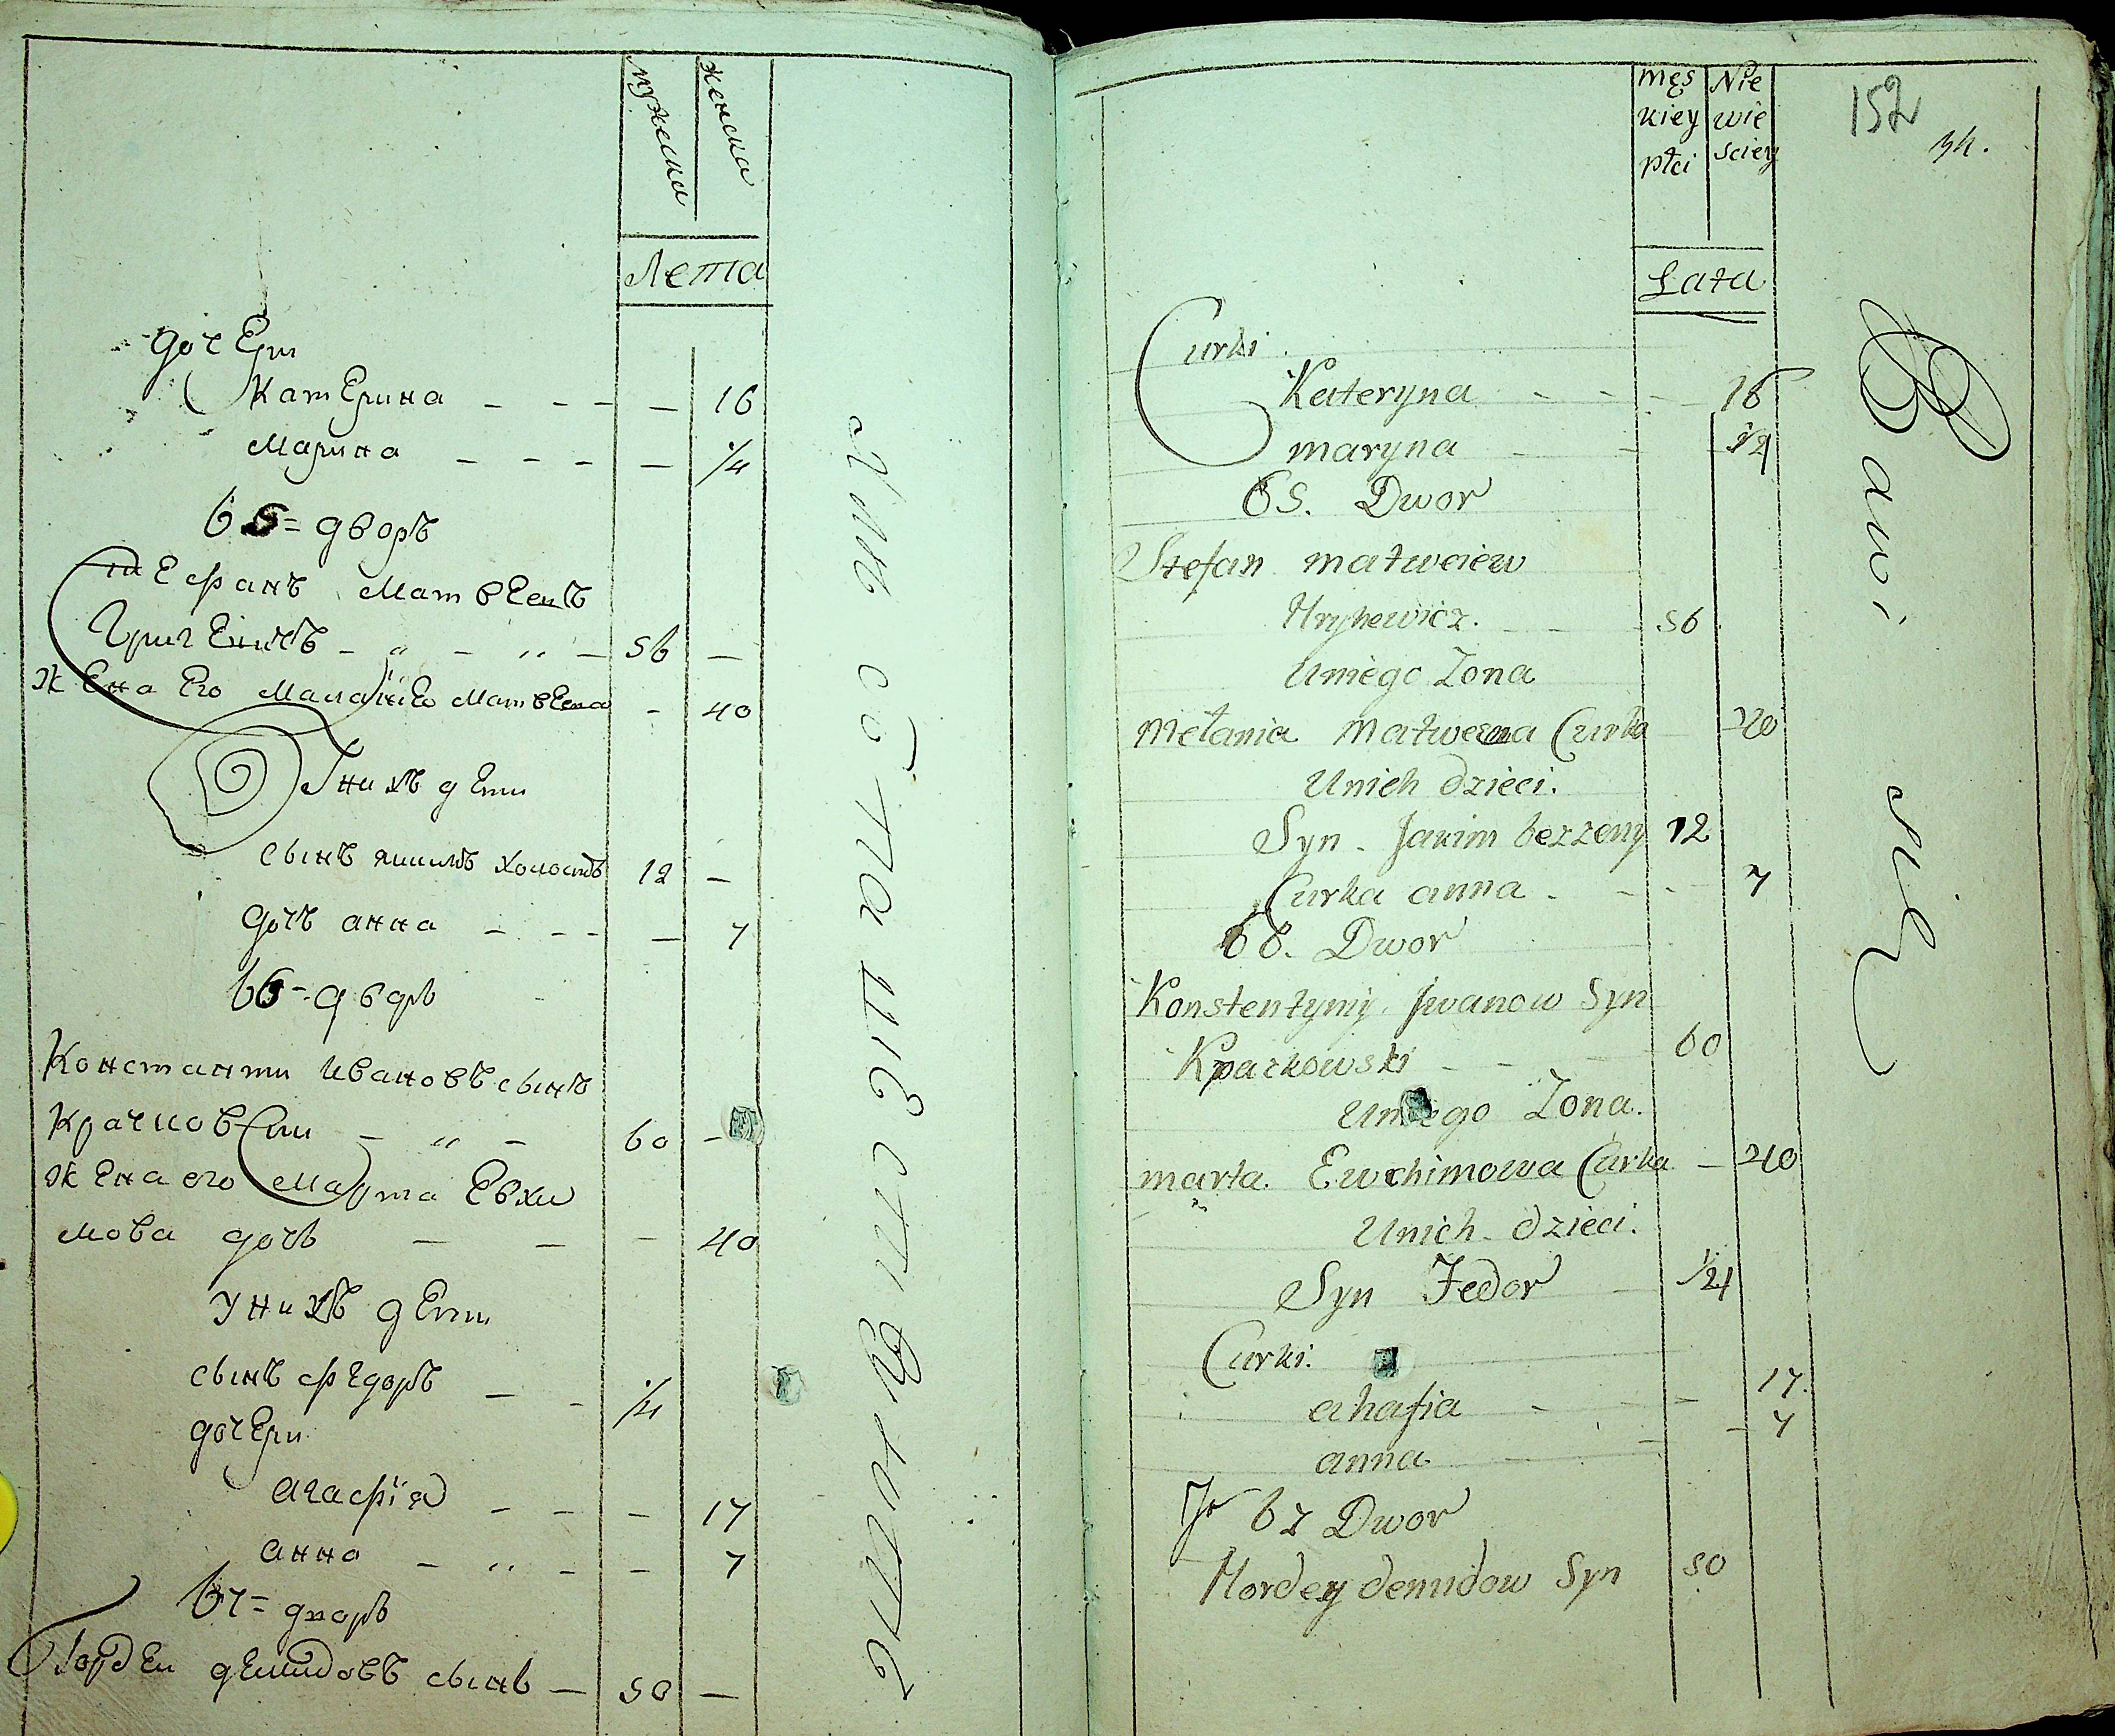 мужеска
женска
Лета
дочери
Катерина - - - - 16
Марина - - - - 1/4
65= дворъ
Стефанъ Матвеевъ
Григевичъ - „ - „ - 56 -
жена его Маланія Матвеева - 40
Унихъ дети
сынъ якимъ холостъ 12 -
дочь анна - - - - 7
66- дворъ
Константи Ивановъ сынъ
Крачковски - „ - 60 -
жена его Марта Евхи
мова дочь - - - 40
унихъ дети
сынъ федоръ - - 1/4
дочери
агафїя - - - 17
анна - „ - - 7
67= дворъ
Гордеи демидовъ сынъ - 50 -
męs
kiey
płci
Nie
wie
sciey
152
Lata
Curki
Kateryna - - - 16
maryna - - - 1/4
65. Dwor
Stefan matweiew
Hryhewicz. - - 56
Uniego Zona
Mełania Matwewna Curka - 40
Unich dzieci.
Syn - Jakim bezzeny 12
Curka anna - - - 7
66. Dwor
Konstentyny Jwanow Syn
Kraczkowski - - - 60
Uniego Zona.
marta Ewchimowa Curka - 40
Unich dzieci.
Syn Fedor - 1/4
Curki.
ahafia - - - 17.
anna - - 7
67 Dwor
Hordey demidow Syn 50
Bawi
się